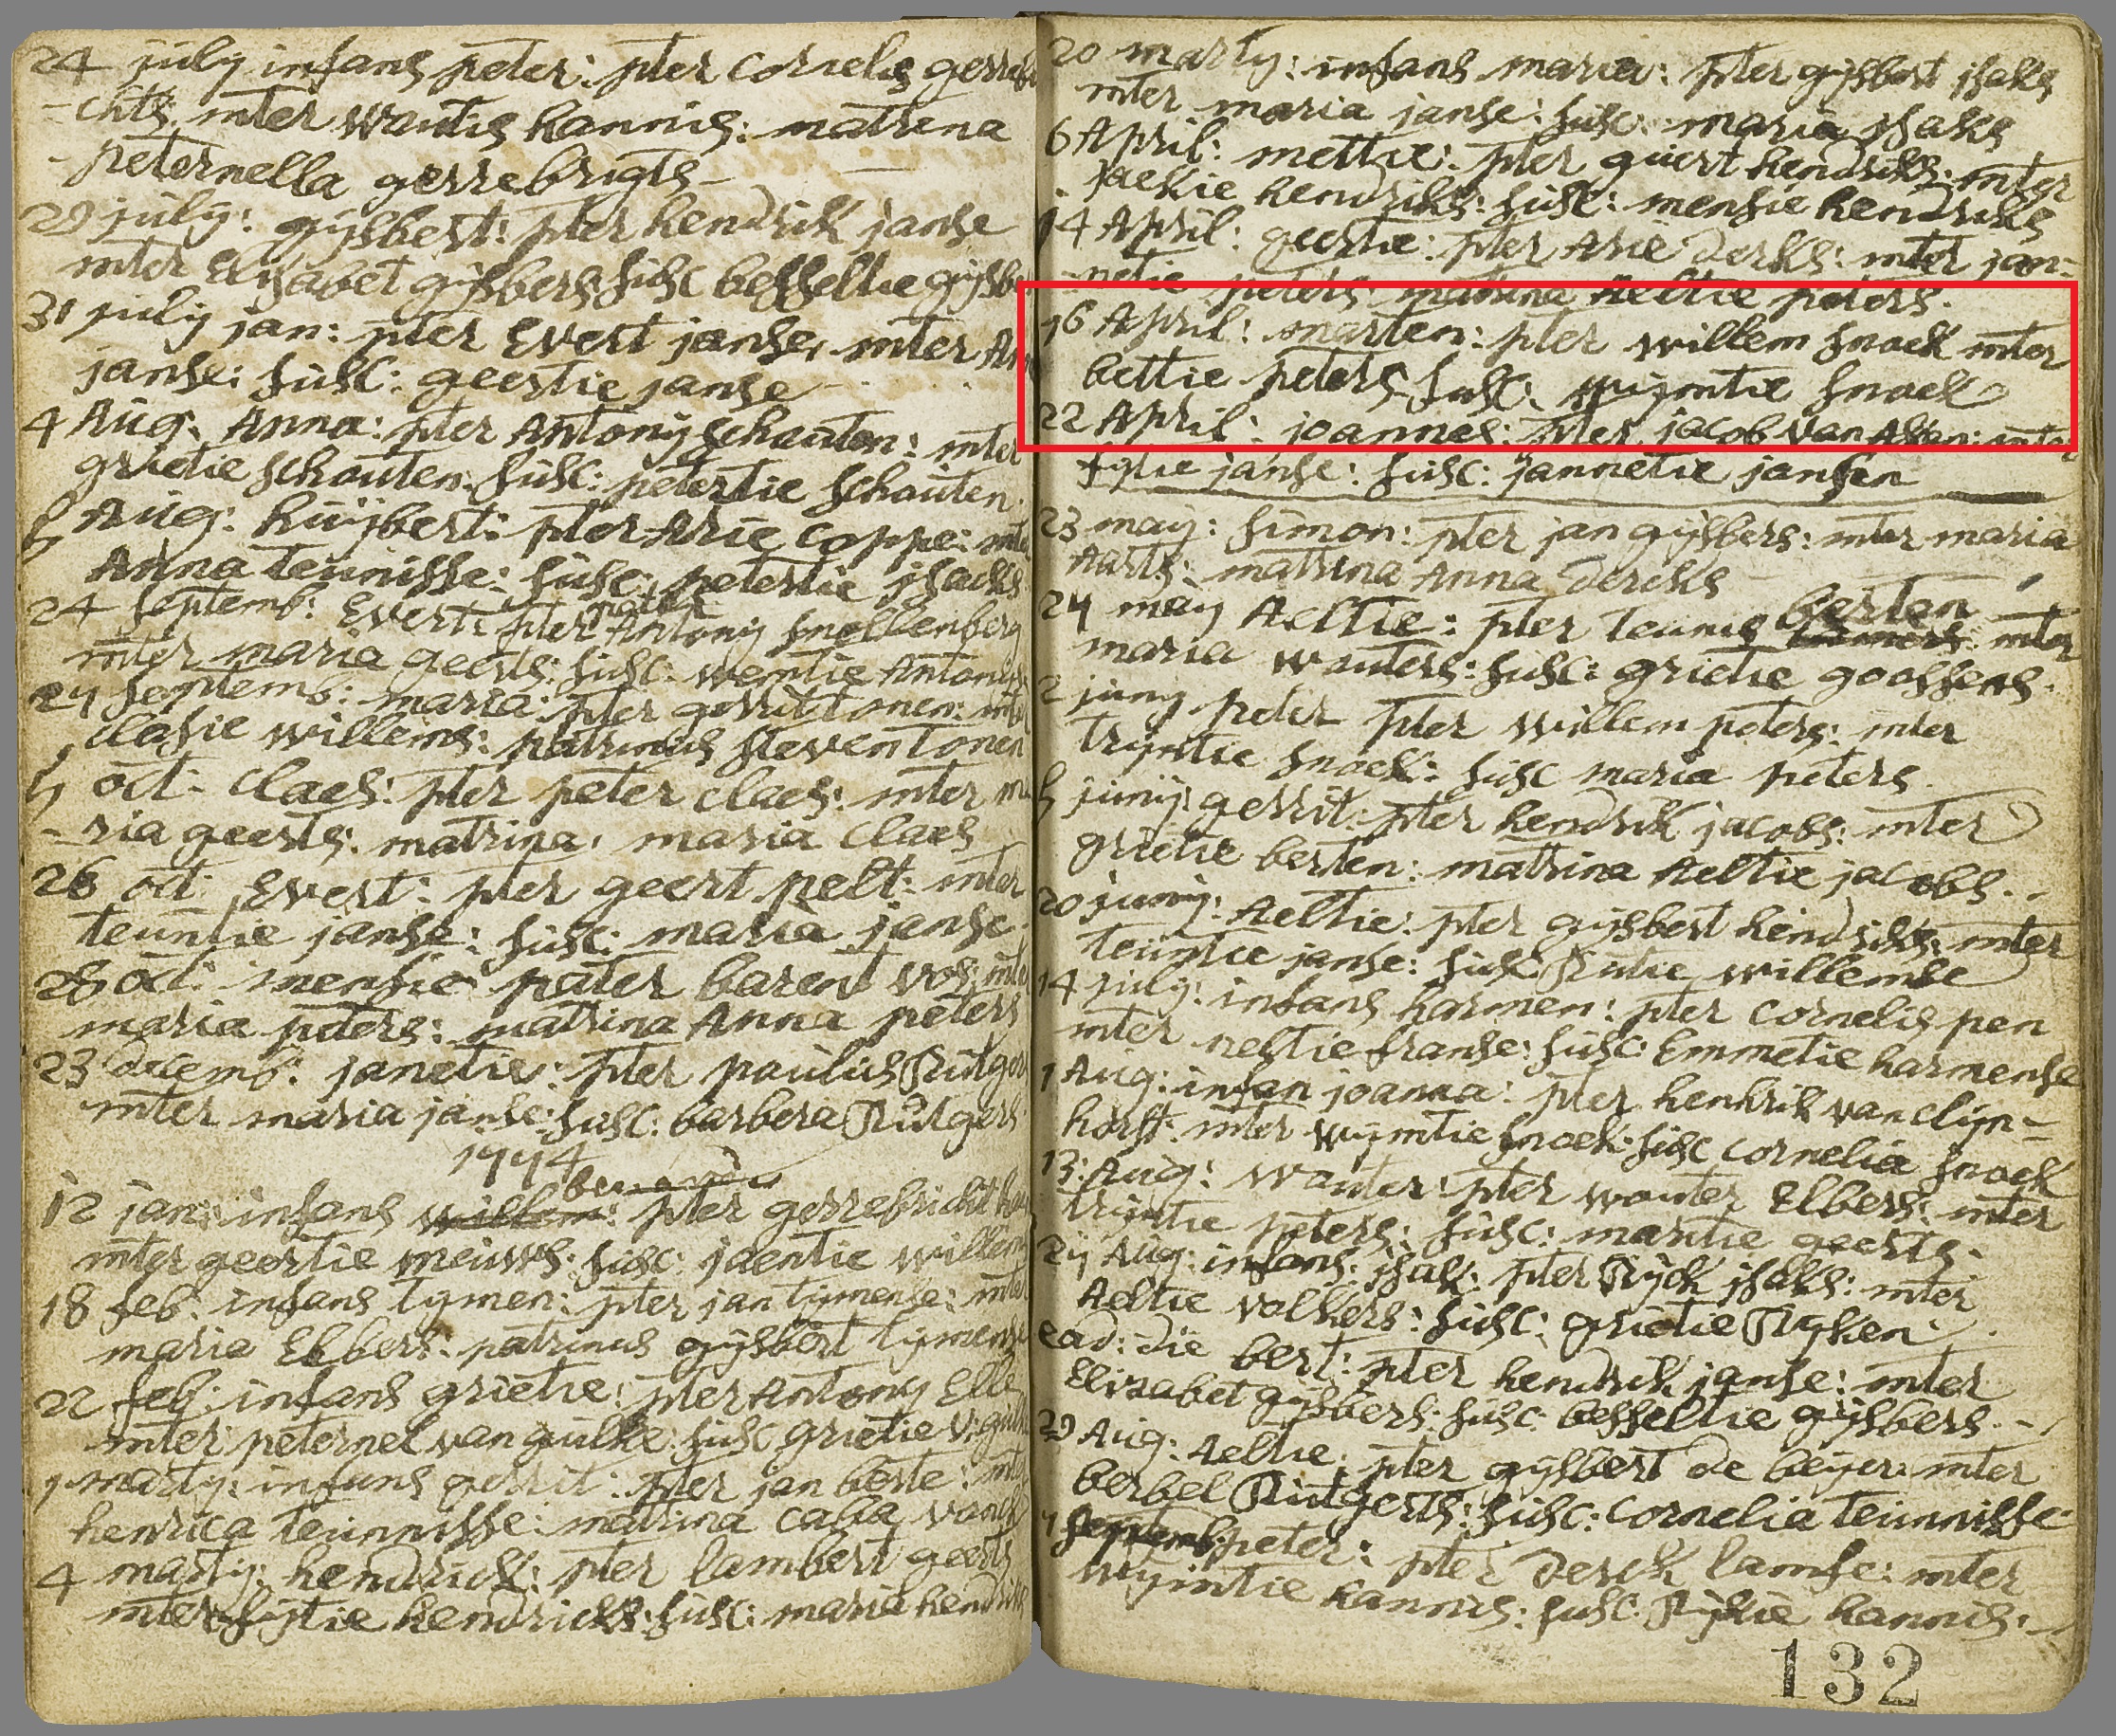 24 july infans peter: pter cornelis gerre
-chts, mter wantis hannis: matrina
-peternella gerrebrigts-
29 july: gijsbert: pter hendrik janse
mter Elisabet gijsbers susc besseltie gijsber
31 july jan: pter Evert janse, mter
janse: susc: geertie janse
4 Aug: Anna: pter Antony schouten: mter
grietie schouten. susc: petertie schouten.
6 Aug: huijbert: pter Arie coppe: mter
Anna teunisse: susc: petertie jsacks
24 septemb: Evert: pter Antony snellenberg
mter maria geerts: susc: wemtie Antonis
27 septemb: maria: pter gerrit tonen: mter
clasie willems: patrinus steven tonen
5 oct: claes: pter peter claes: mter ma
-ria geerts: matrina: maria claes
26 oct Evert: pter geert pelt: mter
teuntie janse: susc: maria janse.
28 oct: mensie pater barent vos: mter
maria peters: matrina Anna peters
23 decemb: janetie: pter paulus Rutger
mter maria janse: susc: barbera Rutgers
1774
12 jan: infans willem: pter gerrebricht
mter geertie meuws: susc: jaentie willem
18 feb: infans tymen: pter jan tijmense: mter
maria Ebbers: patrinus gijsbert tymense
22 feb: infans grietie: pter Antony Elle
mter peternel van gulke: susc grietie v:
1 marty: infans gerrit: pter jan berte: mter
henrica teunnisse: matrina
4 marty: hendrick: pter lambert geerts
mter sijtie hendricks: susc: maria hendrik
20 marty: infans maria: pter gijsbert jsaks
mter maria janse: susc: maria jsaks
6 April: mettie: pter guert hendriks: mter
jaekie hendriks: susc: mensie hendriks
14 April: geertie: pter Arie Derks: mter jan-
-netie peters: matrina Aeltie peters.
16 April: marten: pter willem snoek mter
bettie peters susc: wijmtie snoek
22 April: joannes: pter jacob van Assen: mter
fytie janse: susc: jannetie jansen
23 may: simon: pter jan gijsbers: mter maria
Aarts: matrina Anna Dercks
berten
24 may Aeltie: pter teunis mter
maria wouters: susc: grietie goossens.
2 juny peter pter willem peters: mter
trijntie snoek: susc maria peters.
5 junij: gerrit: pter hendrik jacobs: mter
grietie berten: matrina Aeltie jacobs.
20 junij: Aeltie: pter gijsbert hendriks: mter
teuntie janse: susc Rutie willemse
14 july: infans harmen: pter cornelis pen
mter neltie franse: susc: Emmetie harmense
1 Aug: infan joanna: pter henkrik van clijn-
horst: mter wijmtie snoek: susc cornelia snoek
13: Aug: wouter: pter wouter Elbers: mter
trijntie peters: susc: martie geerts.
27 Aug: infans: jsak: pter Rijck jsaks: mter
Aeltie volkers: susc: grietie Ryken.
ead: die bert: pter hendrik janse: mter
Elisabet gijsbers: susc: besseltie gijsbers.
29 Aug: Aeltie. pter gijsbert de beijer: mter
berbel Rutgerts: susc: cornelia teunnisse
septemb: peter: pter Derck lamse: mter
wijmtie hannis: susc Rijkie hannis:
132